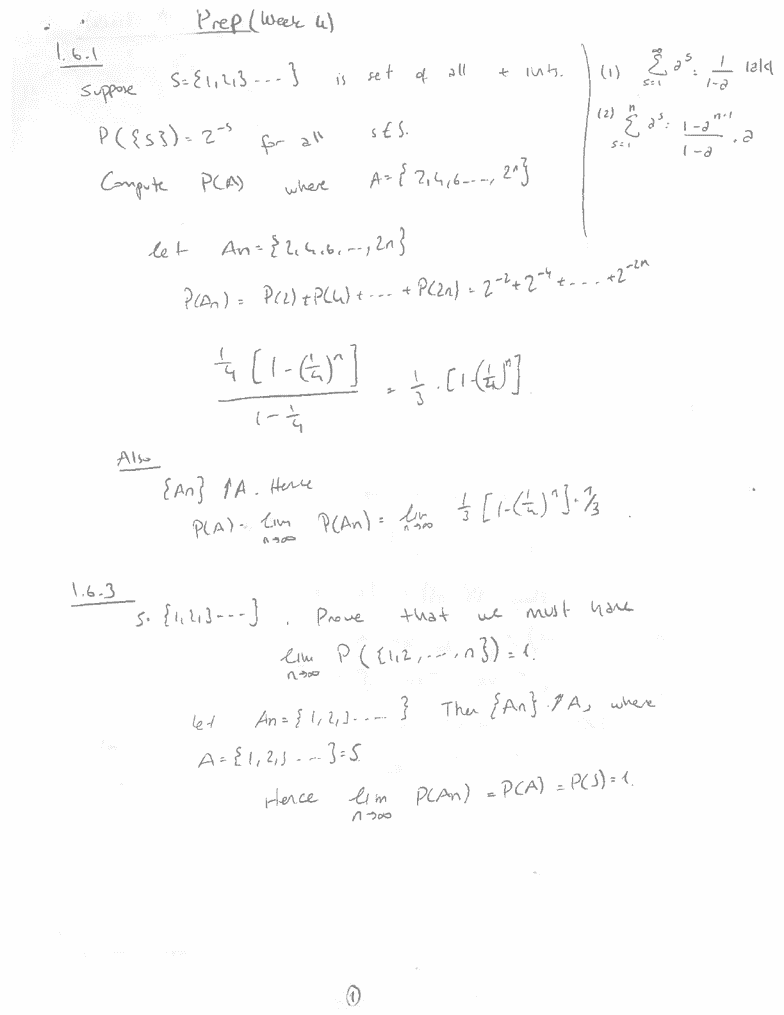 Prep (Week 4)
1.6.1
Suppose S={1,2,3 ---} is set of all + ints.
P({s})=2^-s for all s∈S.
Compute P(A) where A={2,4,6---, 2n}
(1) ∞Σs=1 a^s = 1/(1-a) |a|<1
(2) nΣs=1 a^s = (1-a^(n+1))/(1-a) . a
let An={2,4,6,--,2n}
P(An) = P(2)+P(4)+---+P(2n) = 2^-2+2^-4+...+2^-2n
1/4 [1-(1/4)^n] / (1-1/4) = 1/3 . [1-(1/4)^n]
Also
{An} ↑A. Hence
P(A)= lim n→∞ P(An) = lim n→∞ 1/3 [1-(1/4)^n] = 1/3
1.6.3
S= {1,2,3---}. Prove that we must have
lim n→∞ P({1,2,---,n})=1.
let An={1,2,3-----} Then {An} ↑A, where
A={1,2,3----}=S
Hence lim n→∞ P(An) = P(A) = P(S)=1.
1